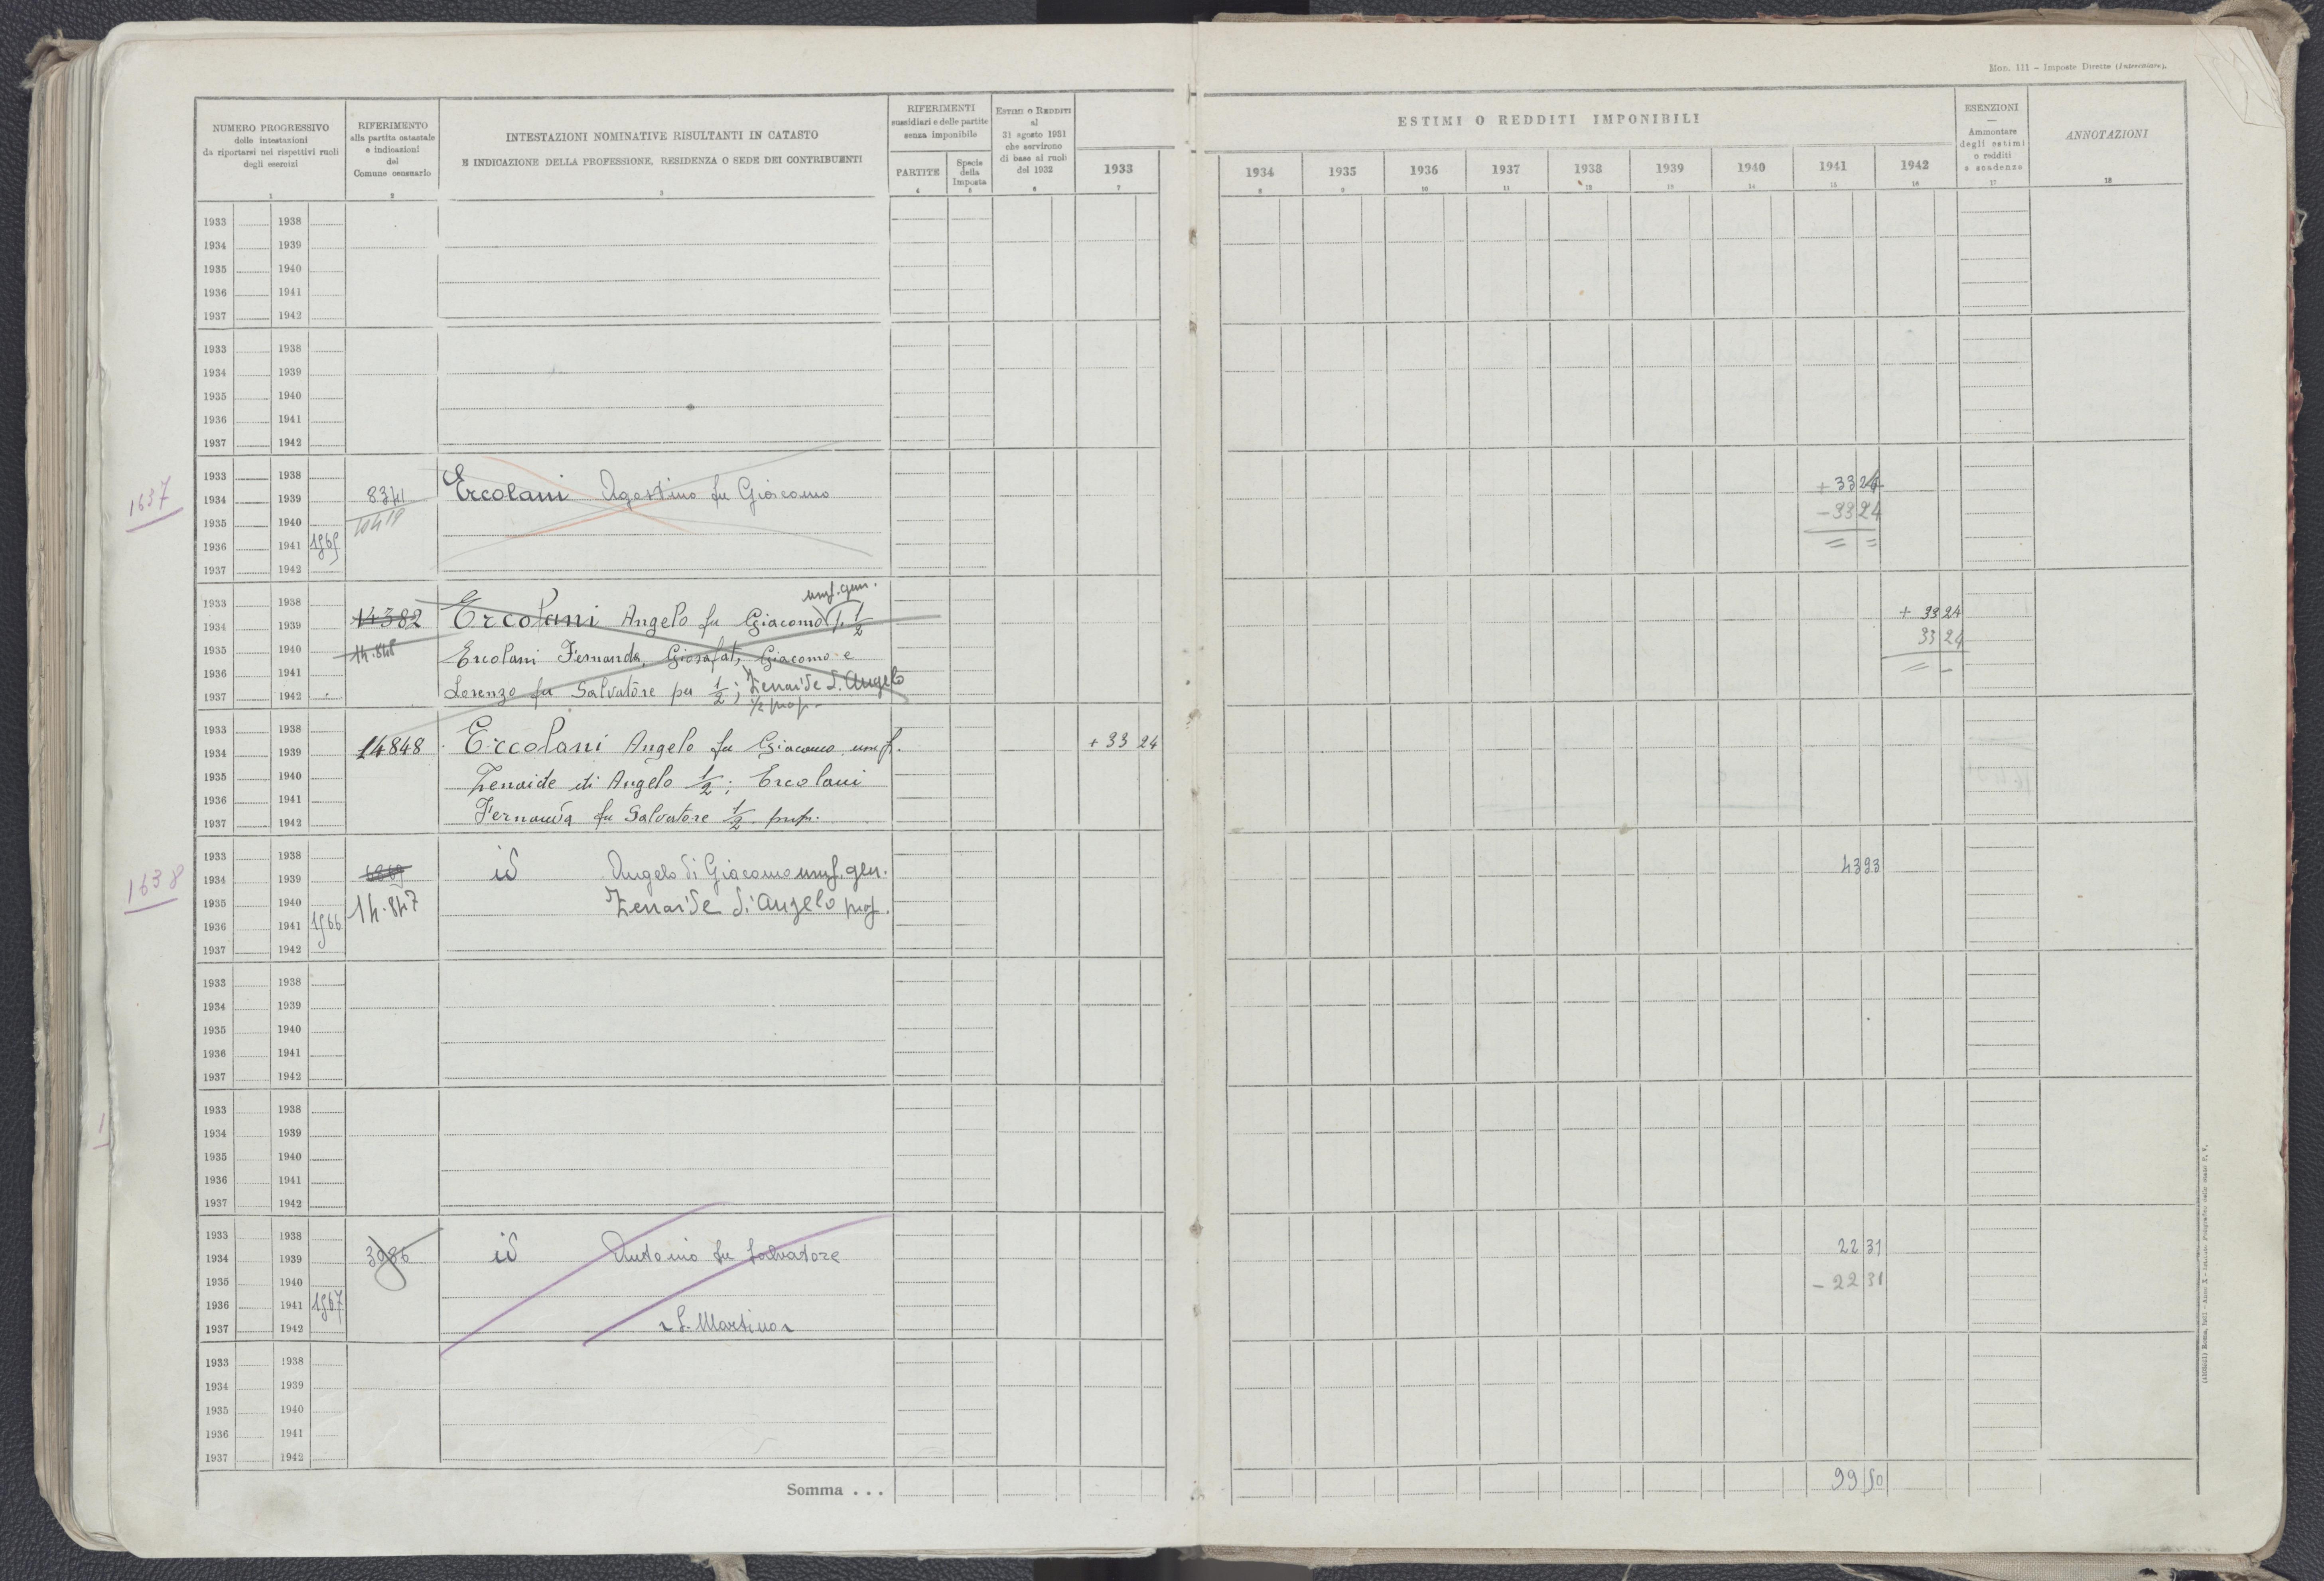 Mod. 111 – Imposte Dirette (Intercalare).
NUMERO PROGRESSIVO
delle intestazioni
da riportarsi nei rispettivi ruoli
degli esercizi
1
RIFERIMENTO
alla partita catastale
e indicazioni
del
Comune censuario
2
INTESTAZIONI NOMINATIVE RISULTANTI IN CATASTO
E INDICAZIONE DELLA PROFESSIONE, RESIDENZA O SEDE DEI CONTRIBUENTI
3
RIFERIMENTI
sussidiari e delle partite
senza imponibile
PARTITE
4
Specie
della
Imposta
5
ESTIMI O REDDITI
al
31 agosto 1931
che servirono
di base ai ruoli
del 1932
6
1933
7
ESTIMI O REDDITI IMPONIBILI
1934 1935 1936 1937 1938 1939 1940 1941 1942
8 9 10 11 12 13 14 15 16
ESENZIONI
—
Ammontare
degli estimi
o redditi
e scadenze
17
ANNOTAZIONI
18
1933 1938
1934 1939
1935 1940
1936 1941
1937 1942
1933 1938
1934 1939
1935 1940
1936 1941
1937 1942
1637
1933 1938
1934 1939 8341 Ercolani Agostino fu Giacomo + 33 24
1935 1940 10419 – 33 24
1936 1941 1965 = =
1937 1942
usuf. gen.
1933 1938
1934 1939 14382 Ercolani Angelo fu Giacomo 1/2 + 33 24
1935 1940 14.848 Ercolani Fernanda, Giosafat, Giacomo e 33 24
1936 1941
1937 1942 Lorenzo fu Salvatore per 1/2; Zenaide d. Angelo
1/2 prop.
1933 1938
1934 1939 14848 Ercolani Angelo fu Giacomo usuf. + 33 24
1935 1940 Zenaide di Angelo 1/2; Ercolani
1936 1941
1937 1942 Fernanda fu Salvatore 1/2 prop.
1638
1933 1938
1934 1939 id Angelo di Giacomo usuf. gen. 43 93
1935 1940 14.847 Zenaide di Angelo prop.
1936 1941 1966
1937 1942
1933 1938
1934 1939
1935 1940
1936 1941
1937 1942
1933 1938
1934 1939
1935 1940
1936 1941
1937 1942
1933 1938
1934 1939 3986 id Antonio fu Salvatore 22 31
1935 1940 – 22 31
1936 1941 1967
1937 1942 S. Martino
1933 1938
1934 1939
1935 1940
1936 1941
1937 1942
Somma . . . 99 50